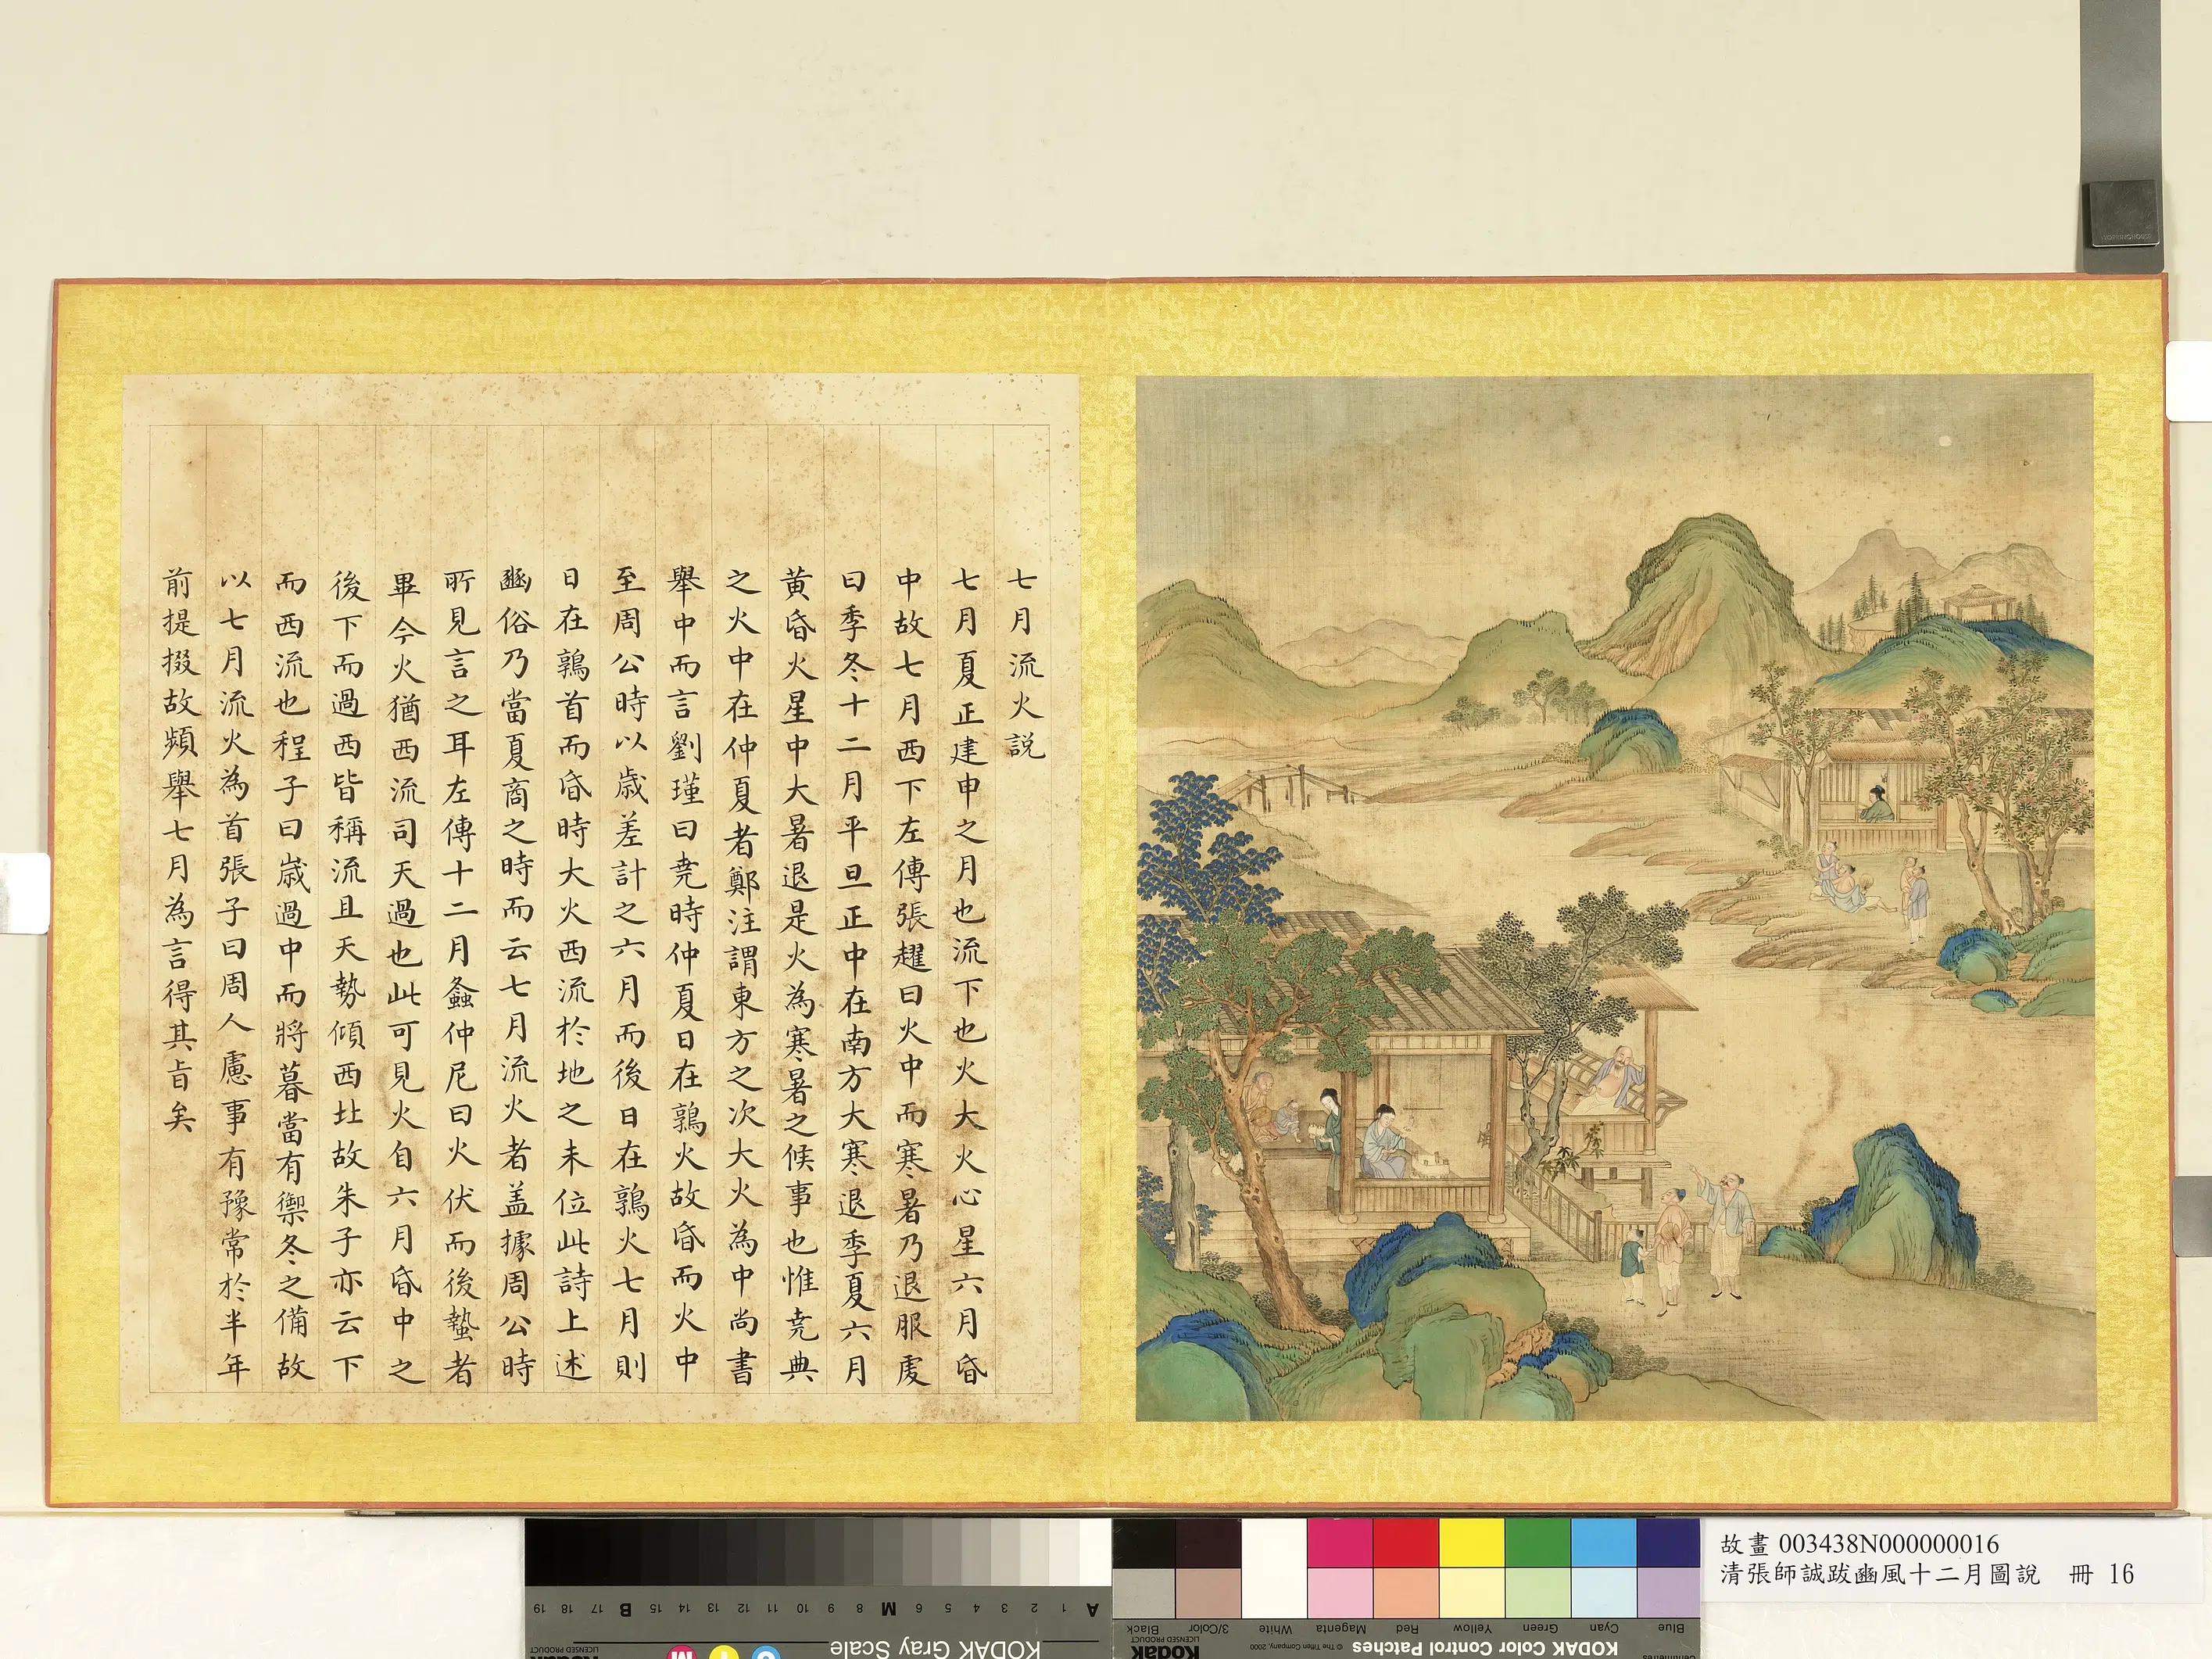 七月流火説
七月夏正建申之月也流下也火大火心星六月昏
中故七月西下左傳張趯曰火中而寒暑乃退服虔
曰季冬十二月平旦正中在南方大寒退季夏六月
黄昏火星中大暑退是火為寒暑之候事也惟堯典
之火中在仲夏者鄭注謂東方之次大火為中尚書
舉中而言劉瑾曰堯時仲夏日在鶉火故昏而火中
至周公時以歲差計之六月而後日在鶉火七月則
日在鶉首而昏時大火西流於地之未位此詩上述
豳俗乃當夏商之時而云七月流火者盖據周公時
所見言之耳左傳十二月螽仲尼曰火伏而後蟄者
畢今火猶西流司天過也此可見火自六月昏中之
後下而過西皆稱流且天勢傾西北故朱子亦云下
而西流也程子曰歲過中而將暮當有禦冬之備故
以七月流火為首張子曰周人慮事有豫常於半年
前提掇故頻舉七月為言得其旨矣
故畫 003438N000000016
清張師誠跋豳風十二月圖說 冊 16
A 1 2 3 4 5 6 M 8 9 10 11 12 13 14 15 B 17 18 19
KODAK Gray Scale
C Y M
Kodak
LICENSED PRODUCT
Blue Cyan Green Yellow Red Magenta White 3/Color Black
KODAK Color Control Patches © The Tiffen Company, 2000
Kodak
LICENSED PRODUCT
Centimetres